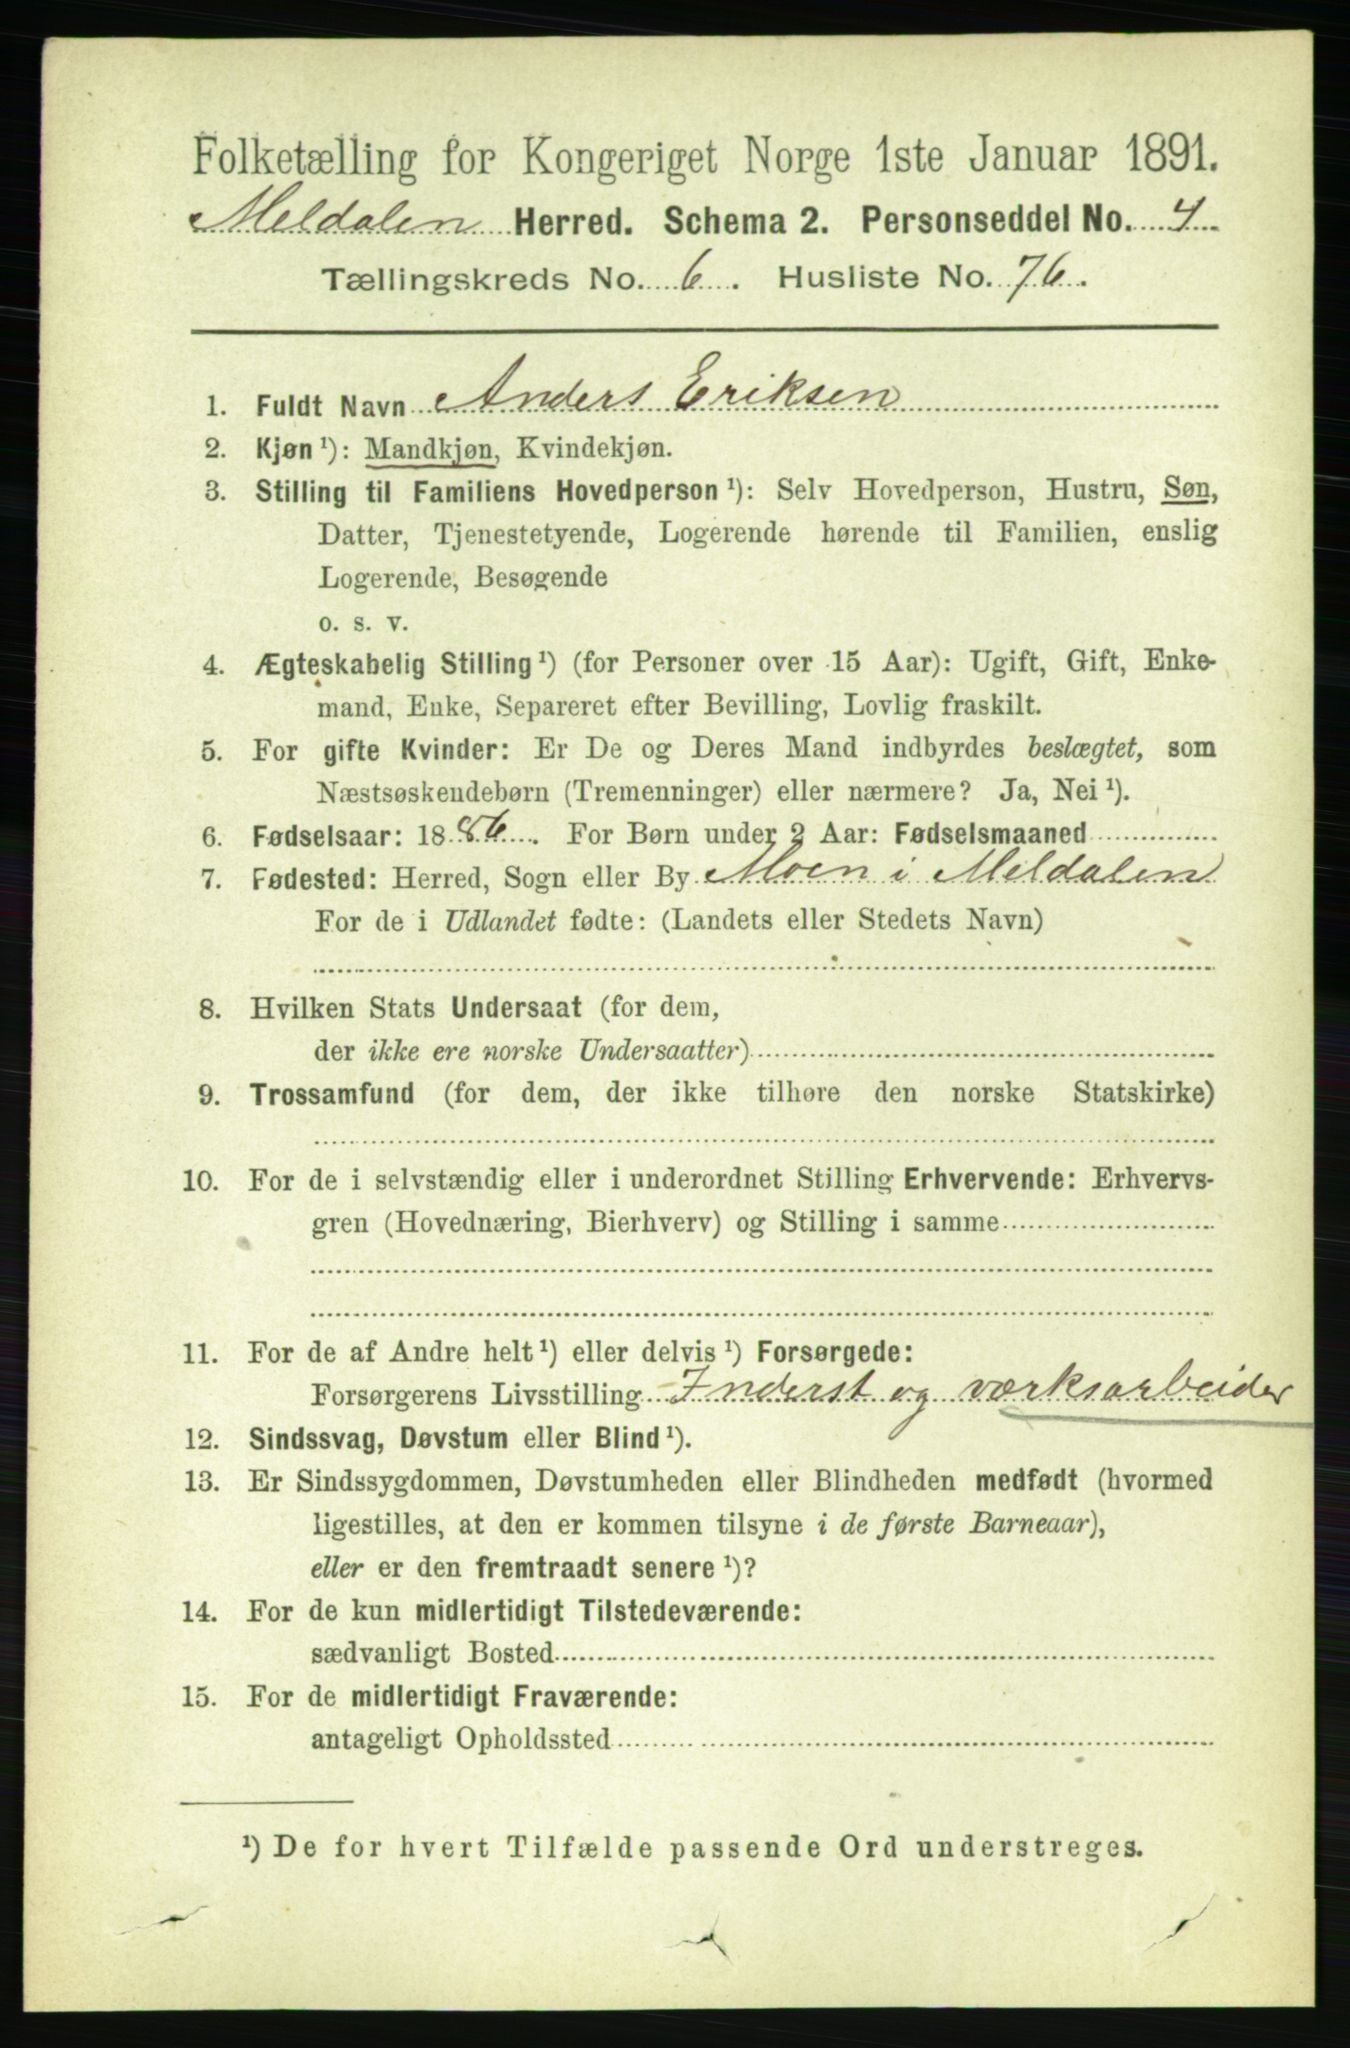 Folketælling for Kongeriget Norge 1ste Januar 1891.
Meldalen Herred. Schema 2. Personseddel No. 4
Tællingskreds No. 6. Husliste No. 76.
1. Fuldt Navn Anders Eriksen
2. Kjøn ¹): Mandkjøn, Kvindekjøn.
3. Stilling til Familiens Hovedperson ¹): Selv Hovedperson, Hustru, Søn,
Datter, Tjenestetyende, Logerende hørende til Familien, enslig
Logerende, Besøgende
o. s. v.
4. Ægteskabelig Stilling ¹) (for Personer over 15 Aar): Ugift, Gift, Enke-
mand, Enke, Separeret efter Bevilling, Lovlig fraskilt.
5. For gifte Kvinder: Er De og Deres Mand indbyrdes beslægtet, som
Næstsøskendebørn (Tremenninger) eller nærmere? Ja, Nei ¹).
6. Fødselsaar: 1886. For Børn under 2 Aar: Fødselsmaaned
7. Fødested: Herred, Sogn eller By Moen i Meldalen
For de i Udlandet fødte: (Landets eller Stedets Navn)
8. Hvilken Stats Undersaat (for dem,
der ikke ere norske Undersaatter)
9. Trossamfund (for dem, der ikke tilhøre den norske Statskirke)
10. For de i selvstændig eller i underordnet Stilling Erhvervende: Erhvervs-
gren (Hovednæring, Bierhverv) og Stilling i samme
11. For de af Andre helt ¹) eller delvis ¹) Forsørgede:
Forsørgerens Livsstilling Inderst og værksarbeider
12. Sindssvag, Døvstum eller Blind ¹).
13. Er Sindssygdommen, Døvstumheden eller Blindheden medfødt (hvormed
ligestilles, at den er kommen tilsyne i de første Barneaar),
eller er den fremtraadt senere ¹)?
14. For de kun midlertidigt Tilstedeværende:
sædvanligt Bosted
15. For de midlertidigt Fraværende:
antageligt Opholdssted
¹) De for hvert Tilfælde passende Ord understreges.